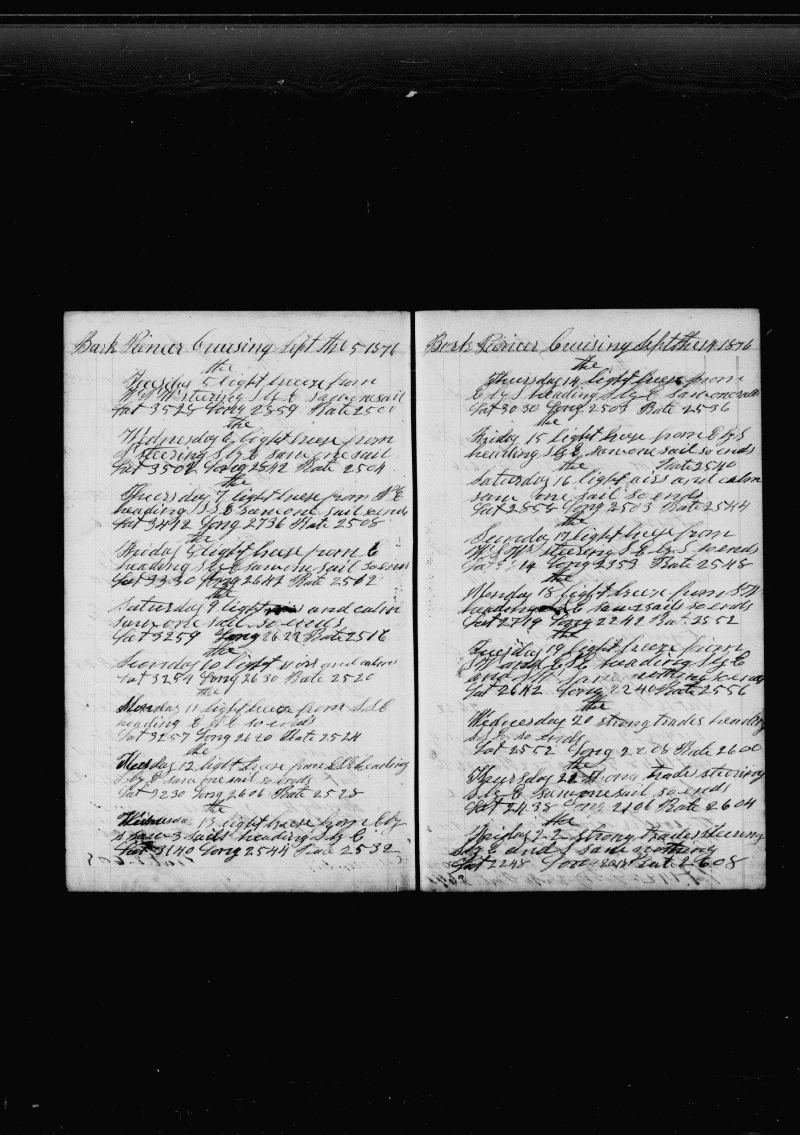 Bark Pioneer Cruising Sept the 5 1876
the
Tuesday 5 light breeze from
W S W stering S by E saw one sail
Lat 3528 Long 2859 Rate 2500
the
Wednesday 6 light breeze from
steering S by E saw one sail
Lat 3502 Long 2842 Rate 2504
the
Thursday 7 light breeze from N E
heading S S E saw one sail so ends
Lat 3442 Long 2736 Rate 2508
the
Friday 8 light breeze from E
heading S by E saw one sail so ends
Lat 3330 Long 2642 Rate 2512
the
Saturday 9 light airs and calm
saw one sail so ends
Lat 3259 Long 2622 Rate 2516
the
Sunday 10 light airs and calm
Lat 3254 Long 2630 Rate 2520
the
Monday 11 light breeze from S S E
heading E so ends
Lat 3257 Long 2620 Rate 2524
the
Tuesday 12 light breeze from S E heading
S by E saw one sail so ends
Lat 3230 Long 2606 Rate 2528
the
Wednesda 13 light breeze from E by
S saw 3 sails heading S by E
Lat 3140 Long 2544 Rate 2532
Bark Pioneer Cruising Sept the 14 1876
the
Thursday 14 light breeze from
E by S heading S by E saw one sail
Lat 3030 Long 2503 Rate 2536
the
Friday 15 light breese from E by S
heading S by E saw one sail so ends
the Rate 2540
Saturday 16 light airs and calm
saw one sail so ends
Lat 2858 Long 2503 Rate 2544
the
Sunday 17 light breese from
W S W steering S E by S so ends
14 Long 2353 Rate 2548
the
Monday 18 light breeze from S W
heading E saw 2 sails so ends
Lat 2719 Long 2242 Rate 2552
the
Tuesday 19 light breeze from
S W and E S E heading S by E
and S W saw nothing so ends
Lat 2642 Long 2240 Rate 2556
the
Wednesday 20 strong trades heading
S by E so ends
Lat 2552 Long 2208 Rate 2600
the
Thursday 21 strong trades steering
S by E saw one sail so ends
Lat 2438 Long 2106 Rate 2604
the
Friday 22 strong trades steering
S by E and S saw nothing
Lat 2248 Long Rate 2608